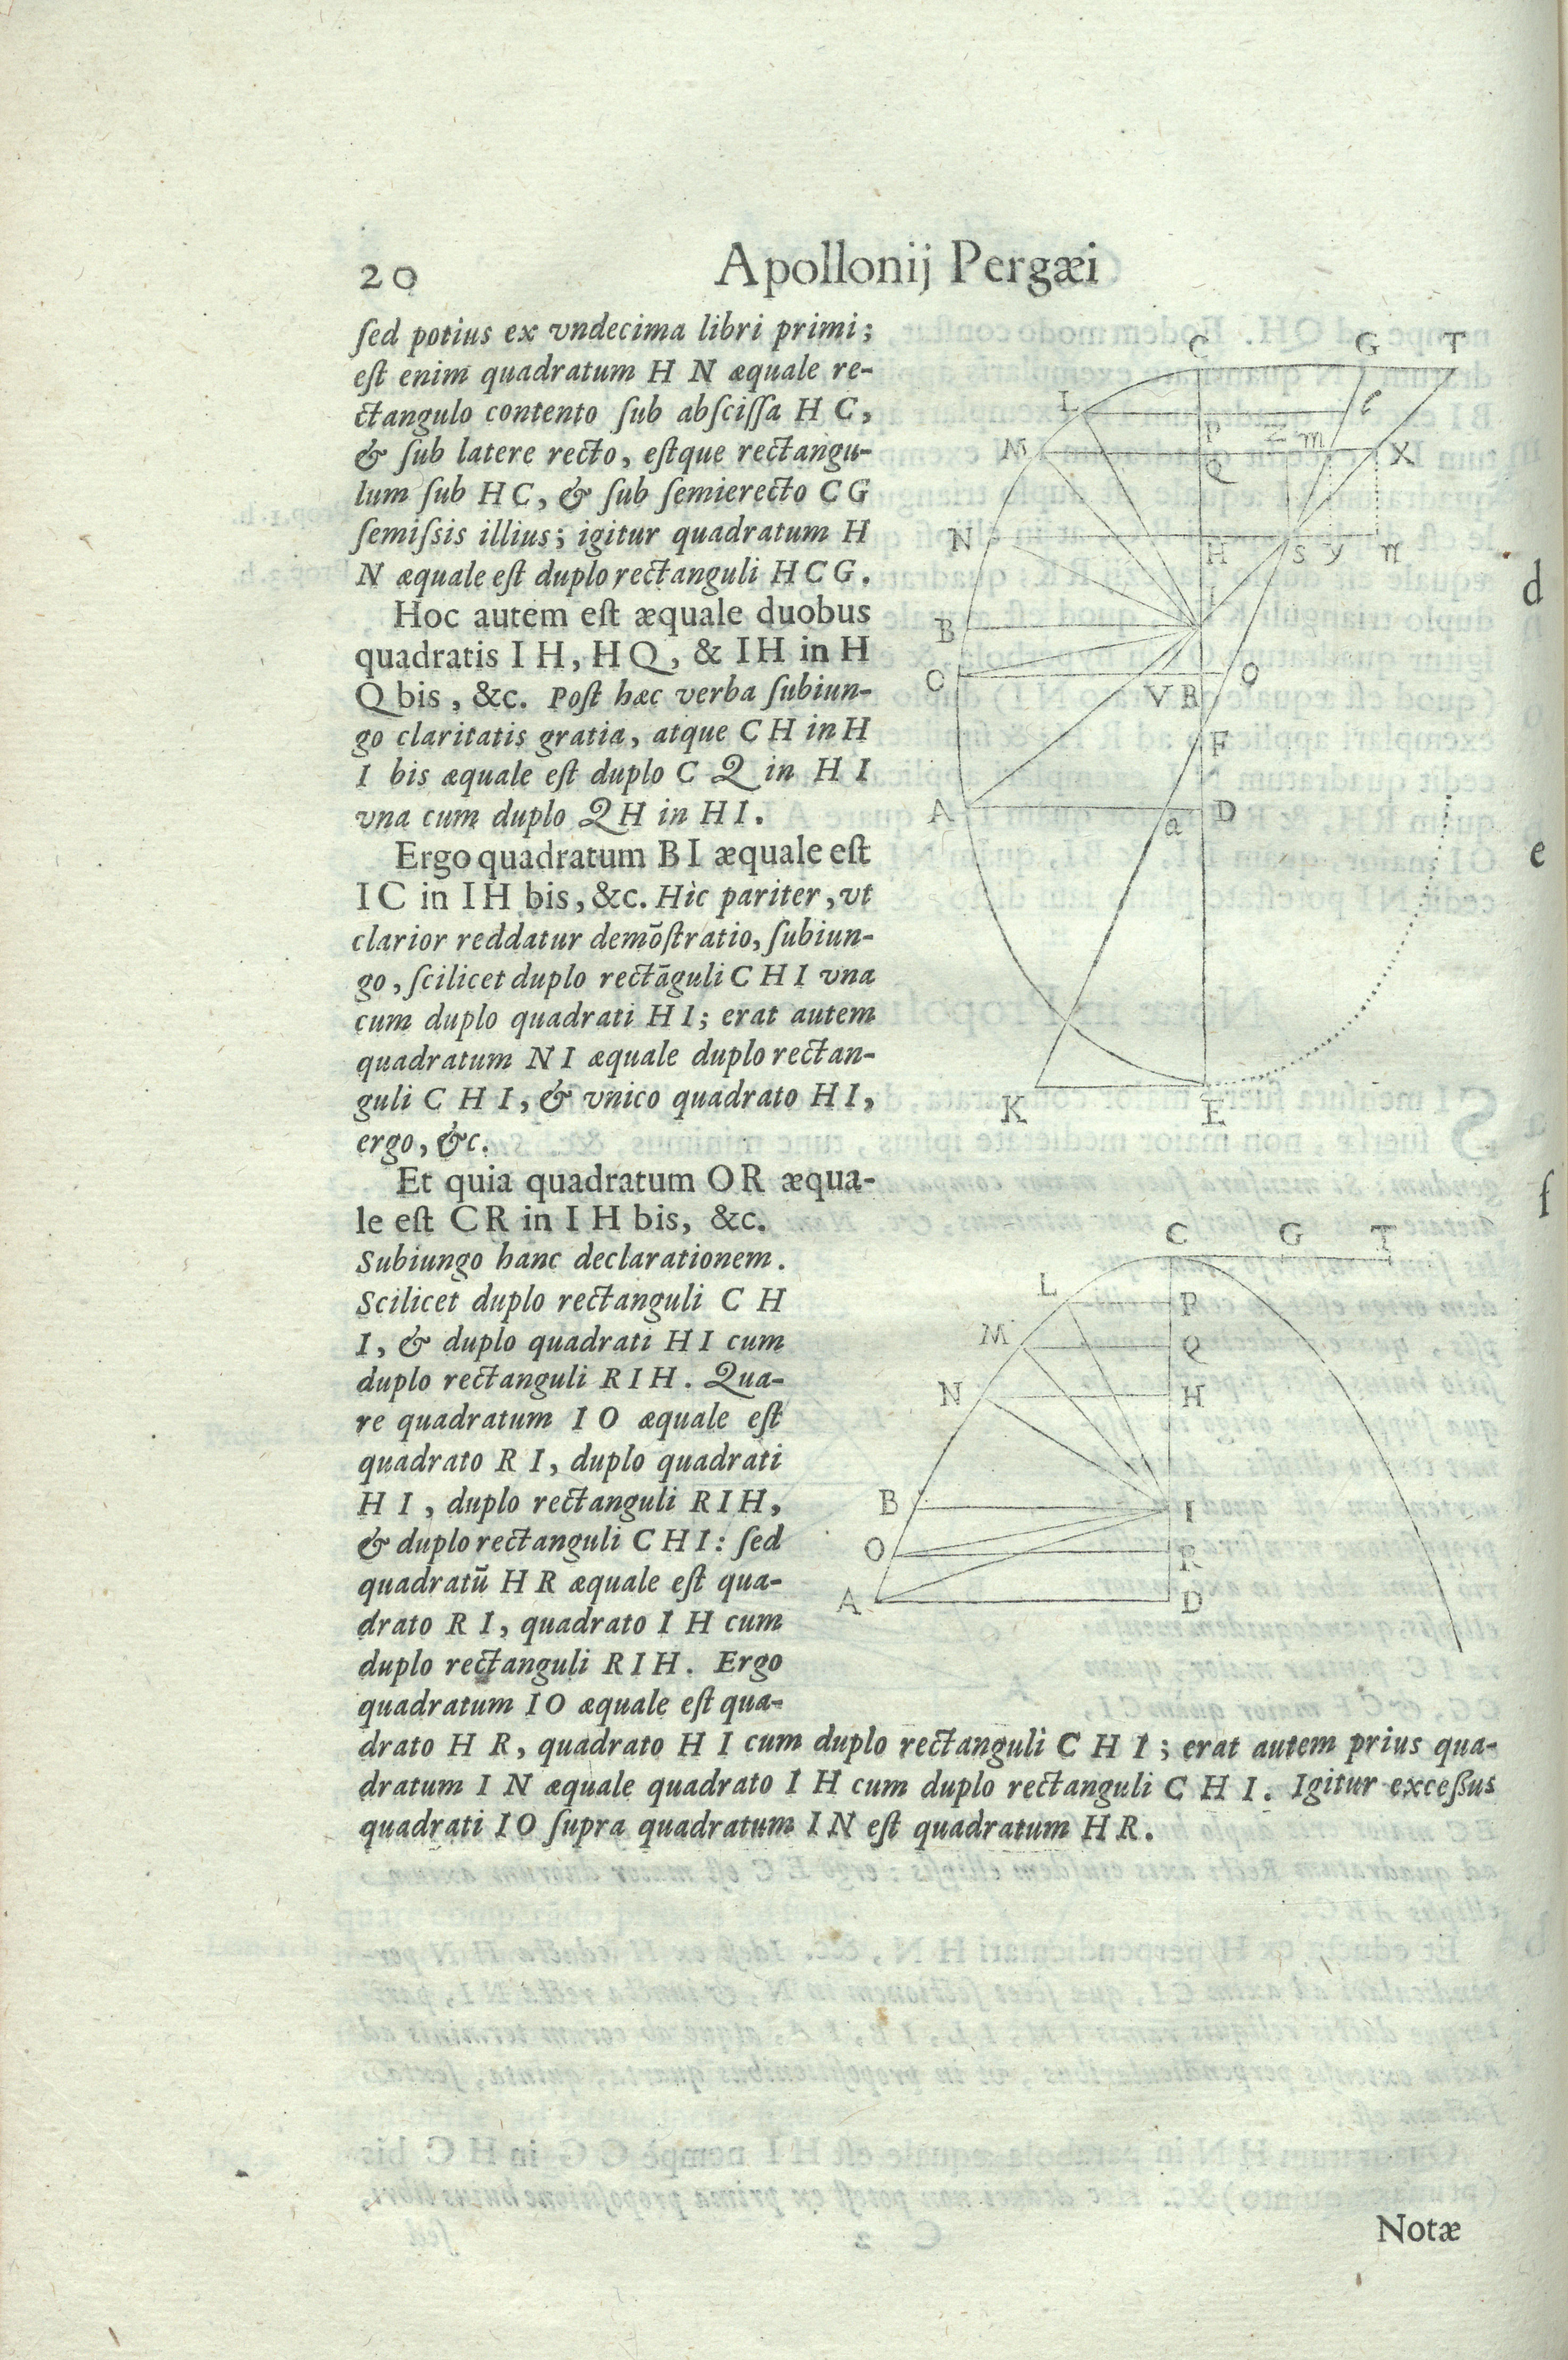 20 Apollonij Pergæi
ſed potius ex vndecima libri primi;
eſt enim quadratum H N æquale re-
ctangulo contento ſub abſciſſa H C,
& ſub latere recto, eſtque rectangu-
lum ſub HC, & ſub ſemierecto CG
ſemiſsis illius; igitur quadratum H
N æquale eſt duplo rectanguli HCG.
Hoc autem eſt æquale duobus
quadratis I H, H Q, & I H in H
Q bis, &c. Poſt hæc verba ſubiun-
go claritatis gratia, atque C H in H
I bis æquale eſt duplo C Q in H I
vna cum duplo Q H in H I.
Ergo quadratum B I æquale eſt
I C in I H bis, &c. Hìc pariter, vt
clarior reddatur demõſtratio, ſubiun-
go, ſcilicet duplo rectãguli C H I vna
cum duplo quadrati H I; erat autem
quadratum N I æquale duplo rectan-
guli C H I, & vnico quadrato H I,
ergo, &c.
Et quia quadratum O R æqua-
le eſt C R in I H bis, &c.
Subiungo hanc declarationem.
Scilicet duplo rectanguli C H
I, & duplo quadrati H I cum
duplo rectanguli R I H. Qua-
re quadratum I O æquale eſt
quadrato R I, duplo quadrati
H I, duplo rectanguli R I H,
& duplo rectanguli C H I: ſed
quadratũ H R æquale eſt qua-
drato R I, quadrato I H cum
duplo rectanguli R I H. Ergo
quadratum I O æquale eſt qua-
drato H R, quadrato H I cum duplo rectanguli C H I; erat autem prius qua-
dratum I N æquale quadrato I H cum duplo rectanguli C H I. Igitur exceßus
quadrati I O ſupra quadratum I N eſt quadratum H R.
C G T
L P l
M Q Z m X
N H S y n
B I
O V R O
F
A a D
K E
C G T
L P
M Q
N H
B I
O R
A D
d
e
f
Notæ